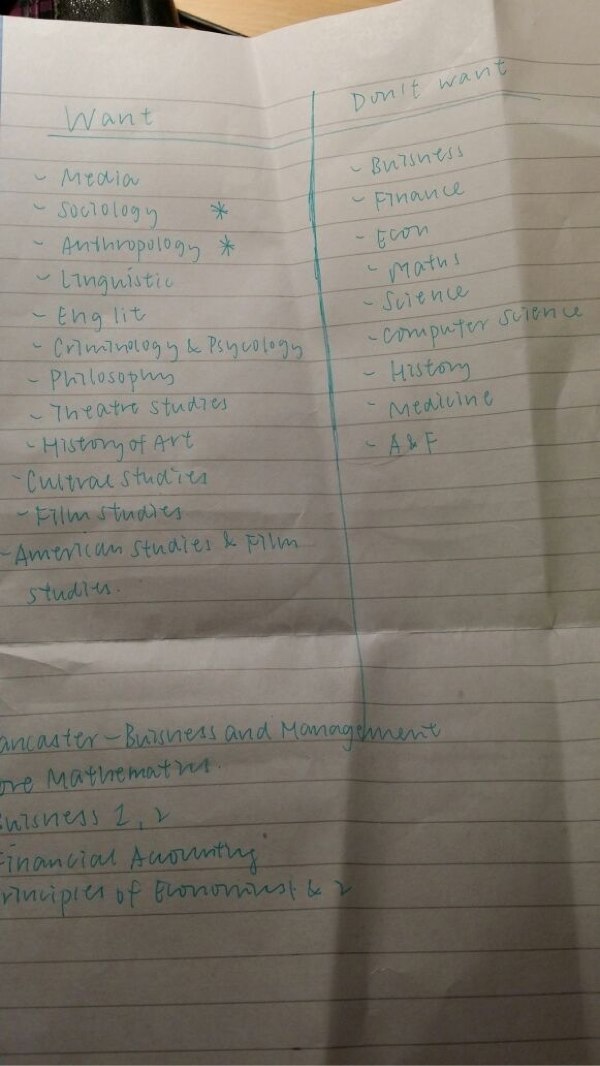 Want
- Media
- Sociology *
- Anthropology *
- Linguistic
- Eng lit
- Criminology & Psycology
- Philosophy
- Theatre studies
- History of Art
- Cultral studies
- Film studies
- American studies & Film
studies.
Don't want
- Buisness
- Finance
- Econ
- Maths
- Science
- Computer science
- History
- Medicine
- A&F
ancaster - Buisness and Management
ore Mathematics.
uisness 1, 2
inancial Acounting
rinciples of Economics 1 & 2